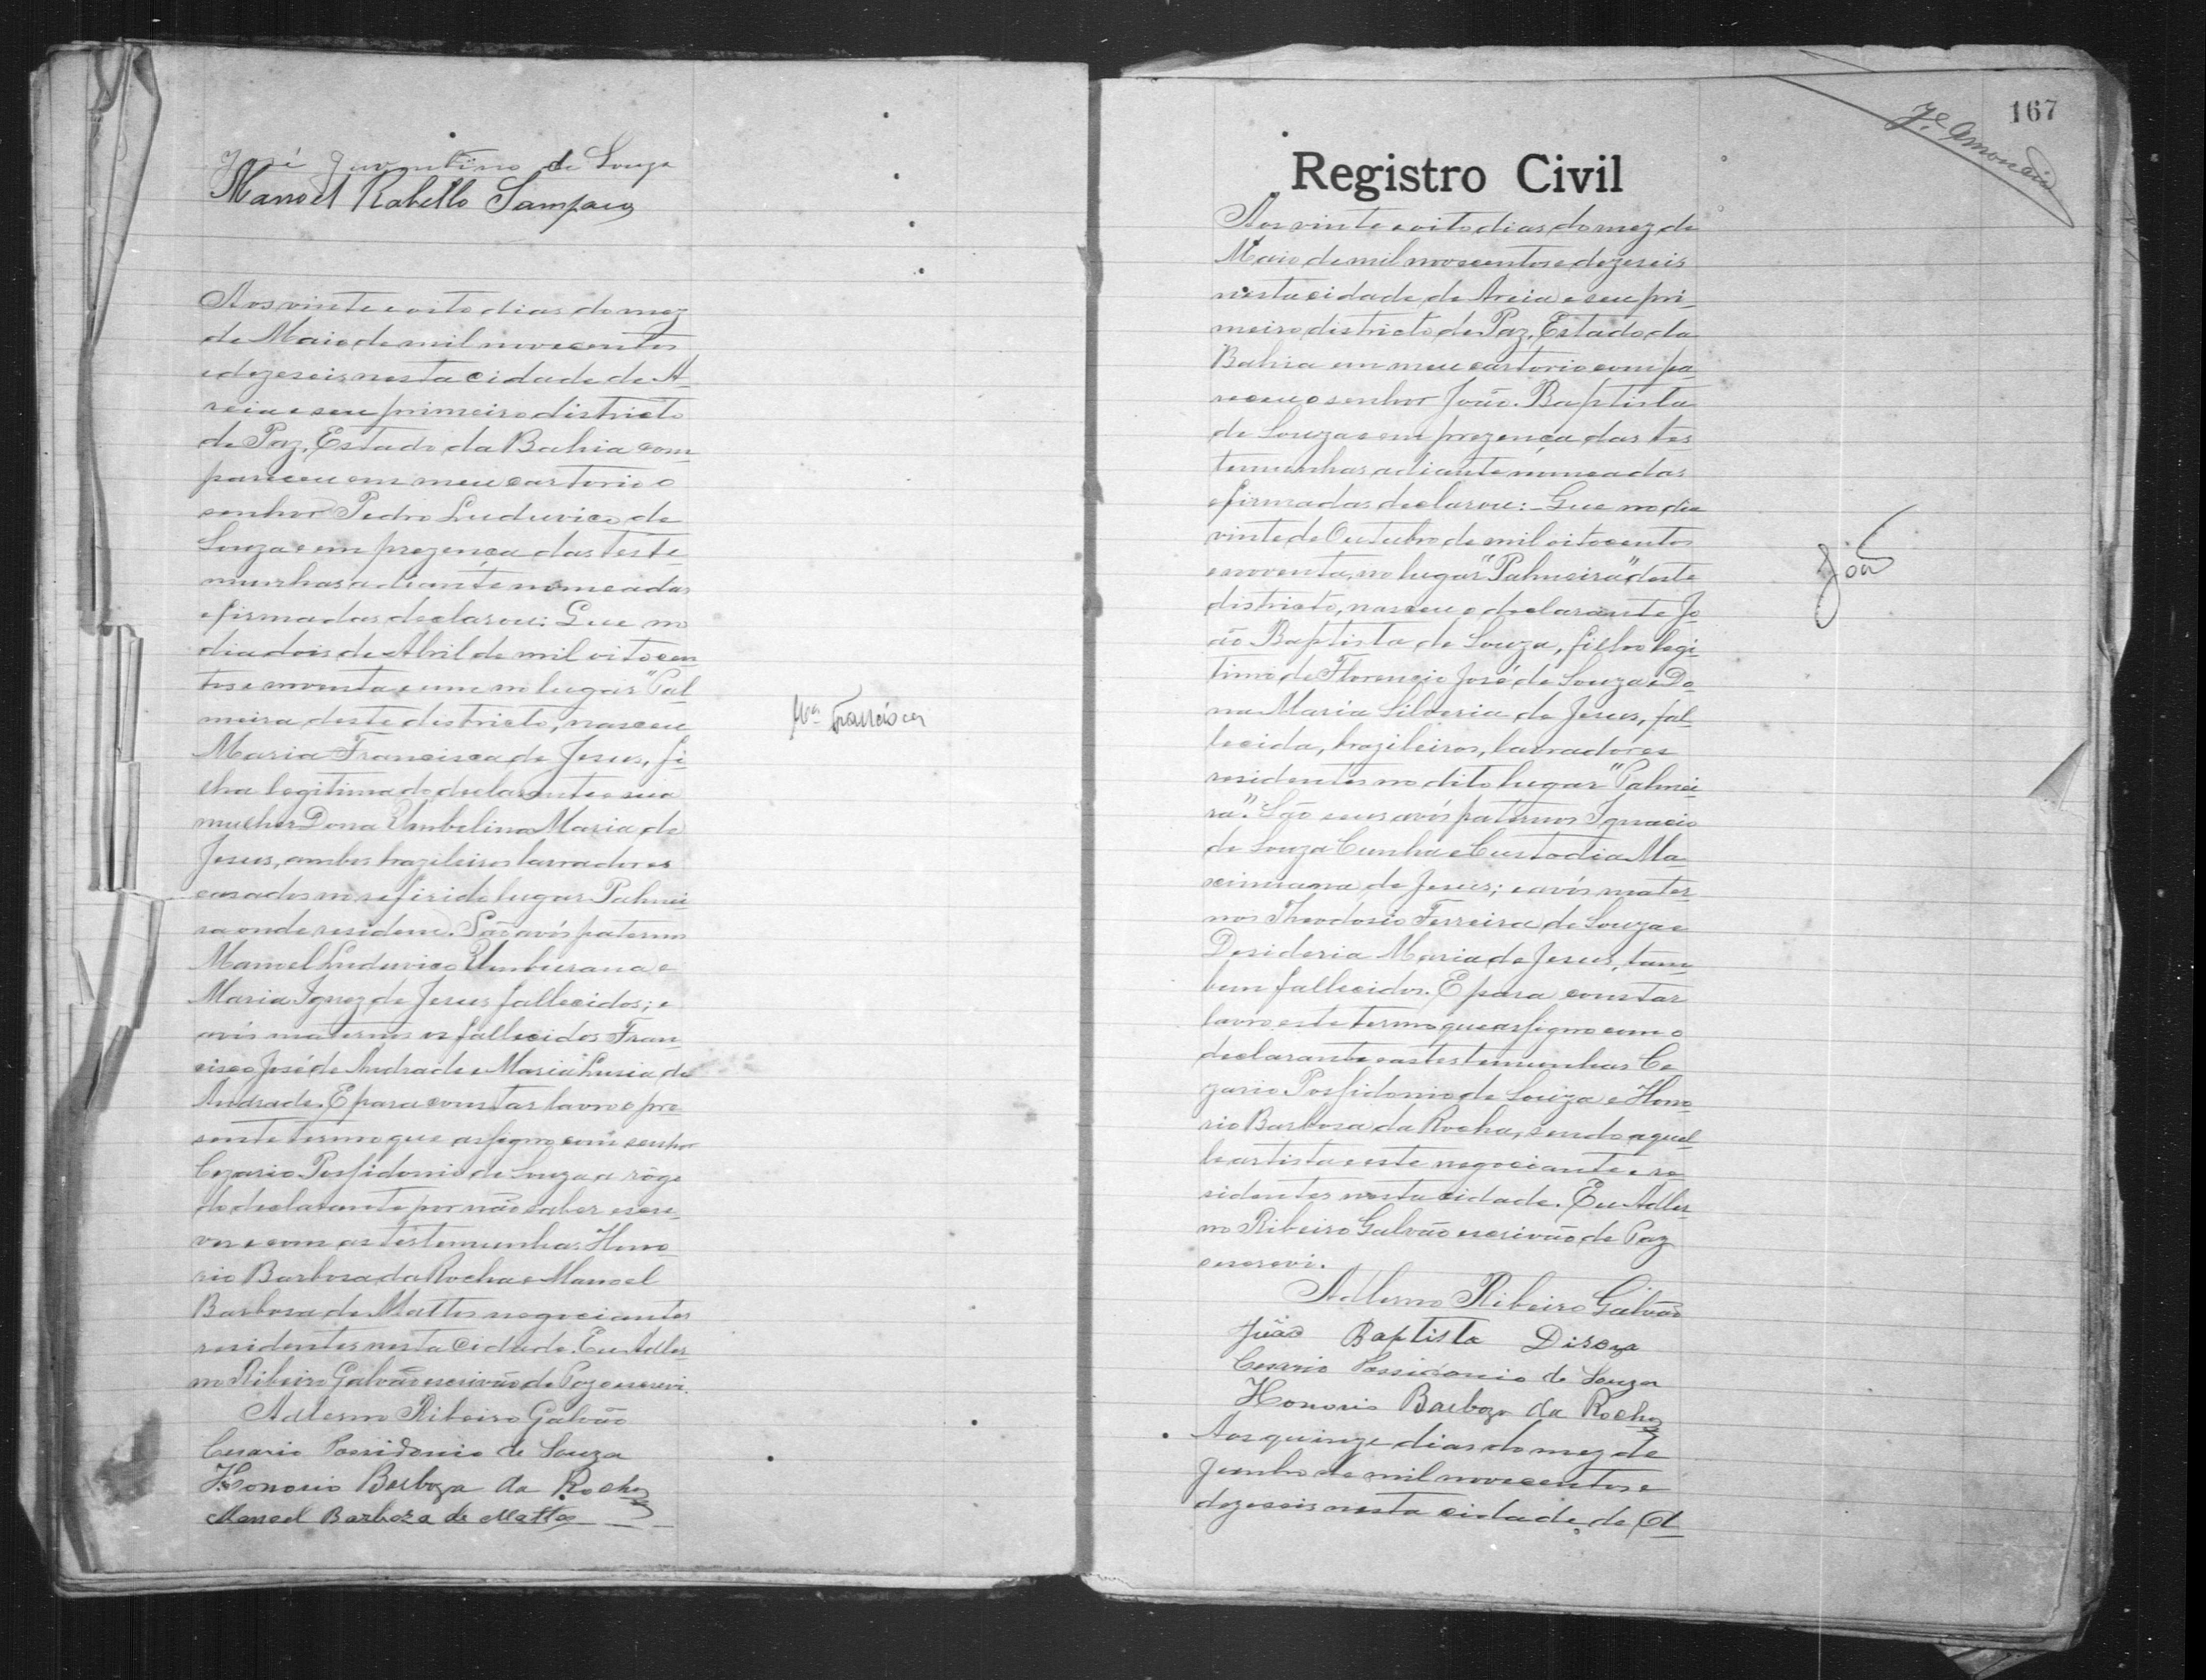 José Juventino de Souza
Manoel Rabello Sampaio
Aos vinte e oito dias do mez
de Maio de mil novecentos
e dezeseis nesta cidade de A-
reia e seu primeiro districto
de Paz, Estado da Bahia com
pareceu em meu cartorio o
senhor Pedro Luduvico de
Souza e em prezença das teste
munhas adiante nomeadas
e firmadas declarou: Que no
dia dois de Abril de mil oitocen
tos e noventa e um no lugar "Pal
meira deste districto, nasceu
Maria Francisca de Jesus, fi-
lha legitima do declarante e sua
mulher Dona Umbelina Maria de
Jesus, ambos brazileiros lavradores
casados no referido lugar Palmei
ra onde residem. São avós paternos
Manoel Ludovico Umburana e
Maria Ignez de Jesus fallecidos; e
avós maternos os fallecidos Fran
cisco José de Andrade e Maria Lusia de
Andrade. E para constar lavro o pre
sente termo que assigno com senhor
Cezario Possidonio de Souza a rôgo
do declarante por não saber escre-
ver e com as testemunhas Hono-
rio Barbosa da Rocha e Manoel
Barbosa de Mattos negociantes
residentes nesta Cidade. Eu Adler
no Ribeiro Galvão escrivão de Paz escrevi.
Adlerno Ribeiro Galvão
Cesario Possidonio de Souza
Honorio Barboza da Rocha
Manoel Barboza de Mattos
Mª Francisca
167
Registro Civil
Aos vinte e oito dias do mez de
Maio de mil novecentos e dezeseis
nesta cidade de Areia e seu pri-
meiro districto de Paz, Estado da
Bahia em meu cartorio compa-
receu o senhor João Baptista
de Souza e em prezença das tes
temunhas adiante nomeadas
e firmadas declarou: Que no dia
vinte de Outubro de mil oitocentos
e noventa, no lugar "Palmeira" deste
districto, nasceu o declarante Jo
ão Baptista de Souza, filho legi-
timo de Florencio José de Souza e Do-
na Maria Silveria de Jesus, fal-
lecida, brazileiros, lavradores
residentes no dito lugar "Palmei-
ra". São seus avós paternos Ignacio
de Souza Cunha e Custodia Ma
ximiana de Jesus; e avós mater-
nos Theodosio Ferreira de Souza e
Desideria Maria de Jesus, tam-
bem fallecidos. E para constar
lavro este termo que assigno com o
declarante e as testemunhas Ce-
zario Possidonio de Souza e Hono-
rio Barbosa da Rocha, sendo aquel-
le artista e este negociante e re
sidentes nesta cidade. Eu Adler-
no Ribeiro Galvão escrivão de Paz
escrevi.
Adlerno Ribeiro Galvão
João Baptista Disoza
Cesario Possidonio de Souza
Honorio Barboza da Rocha
Aos quinze dias do mez de
Junho de mil novecentos e
dezeseis nesta cidade de A
João